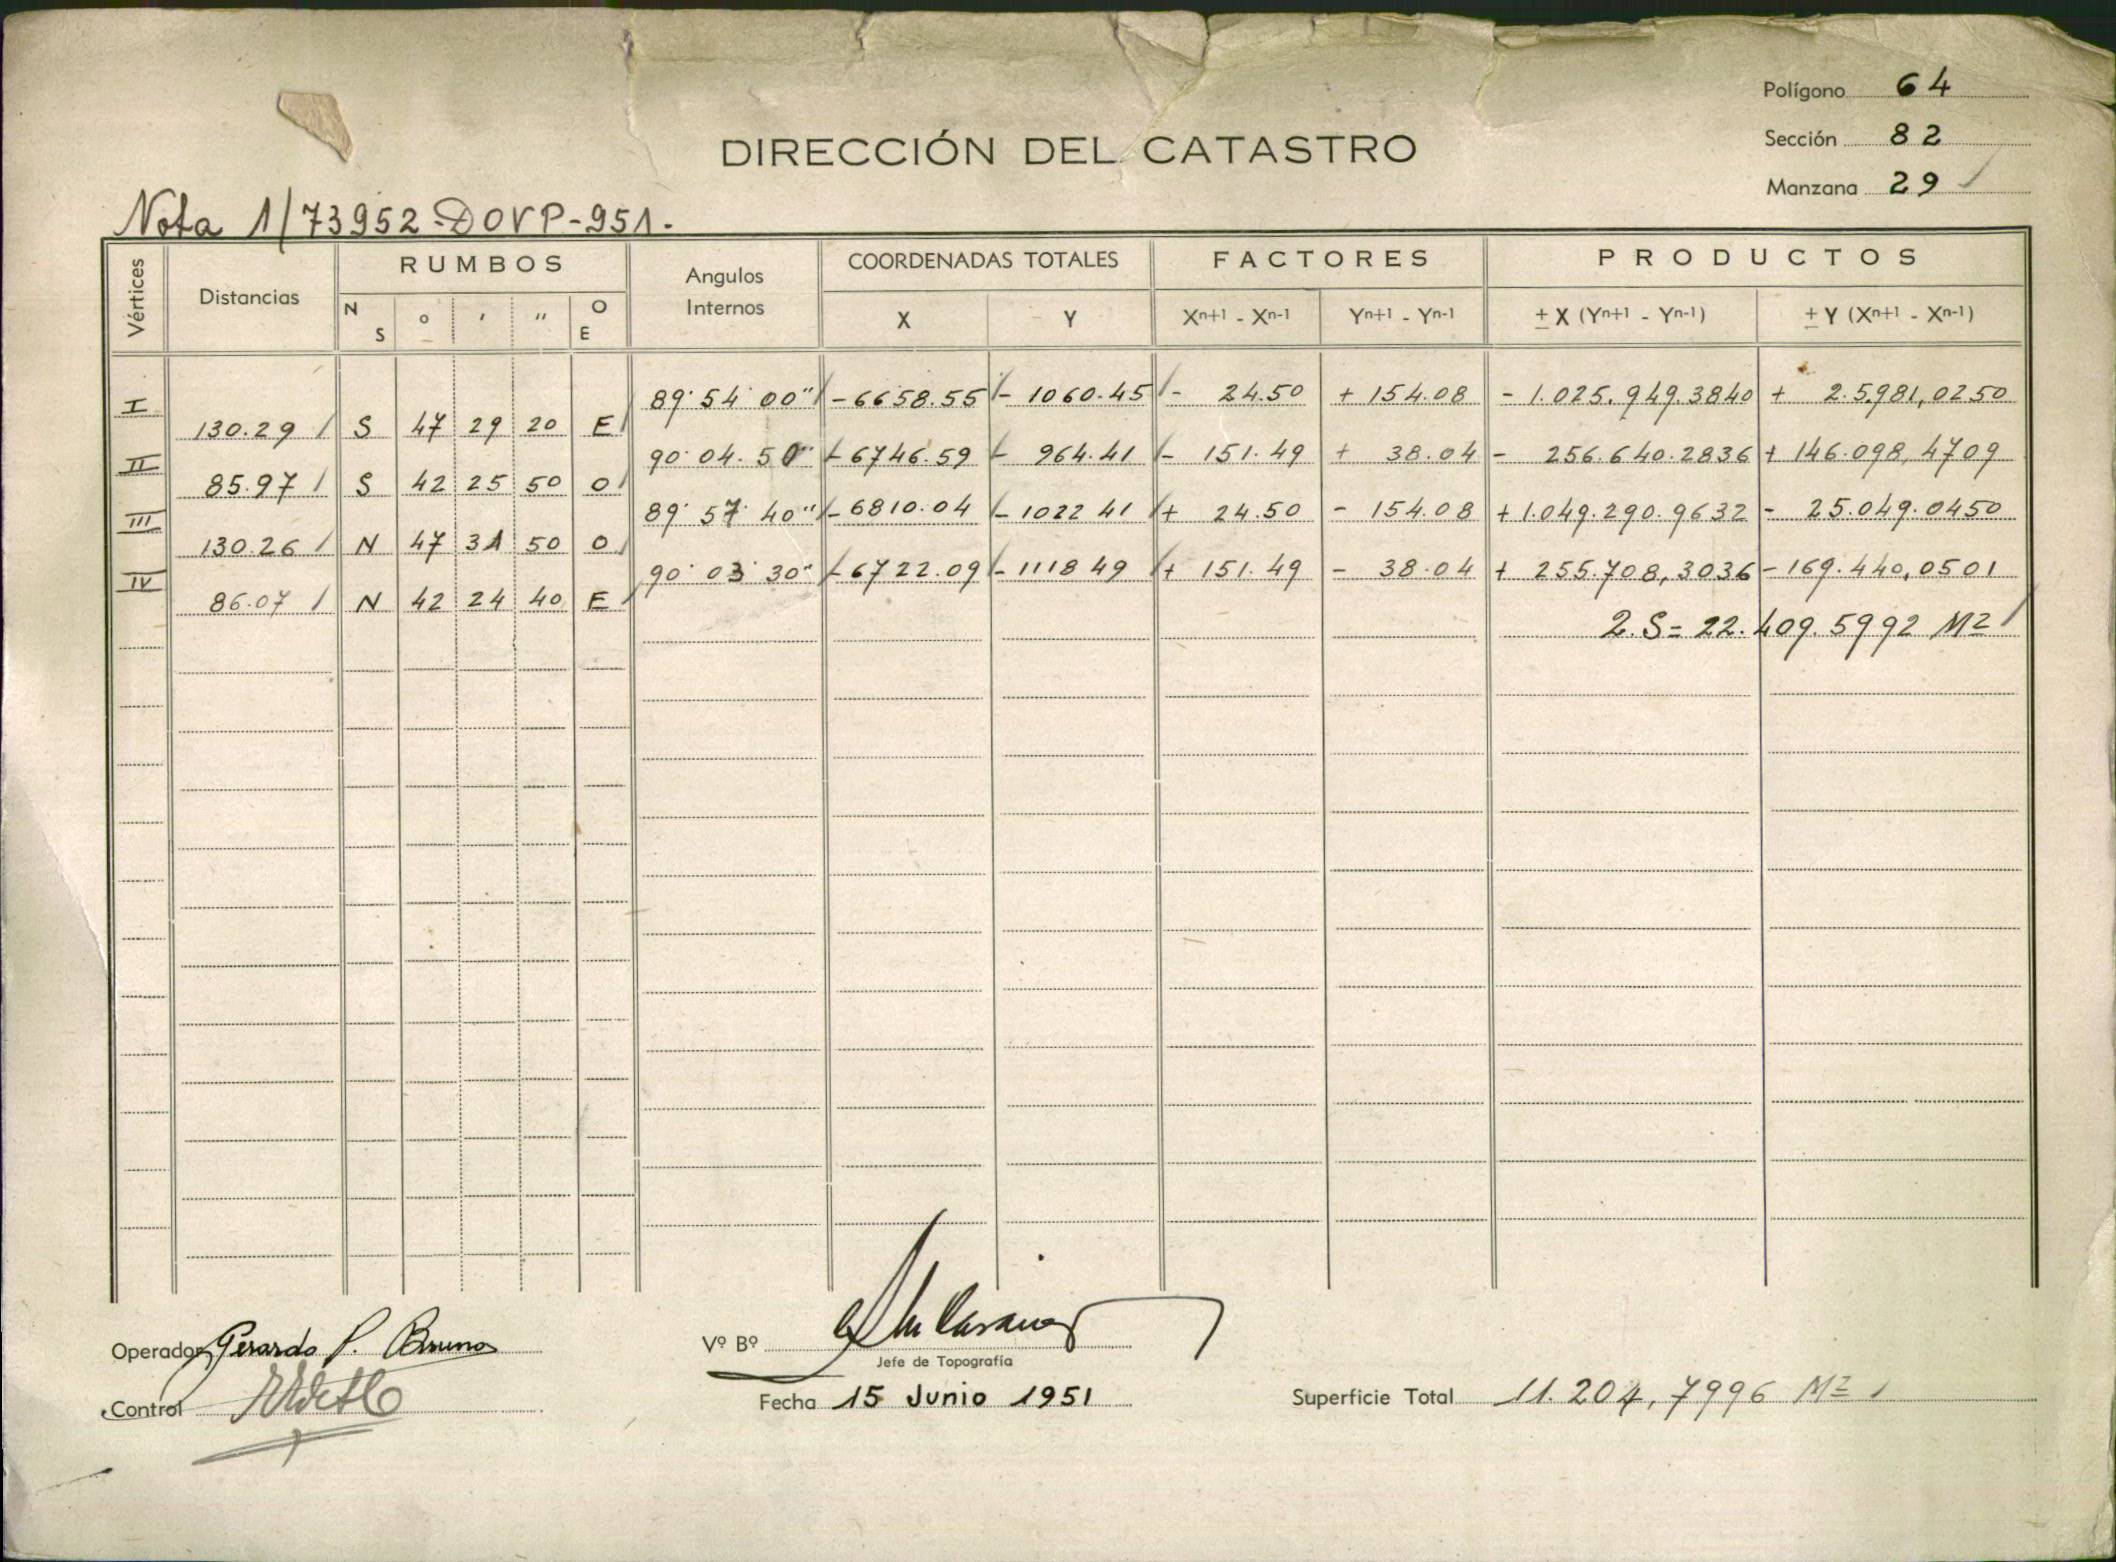 Polígono 64
Sección 82
DIRECCIÓN DEL CATASTRO
Manzana 29
Nota 1/73952-DOVP-951.
Vértices Distancias RUMBOS Angulos Internos COORDENADAS TOTALES FACTORES PRODUCTOS
N S ° ' " O E X Y Xn+1 - Xn-1 Yn+1 - Yn-1 ± X (Yn+1 - Yn-1) ± Y (Xn+1 - Xn-1)
I 89° 54' 00" -6658.55 - 1060.45 - 24.50 + 154.08 - 1.025.949.3840 + 2.5.981,0250
130.29 S 47 29 20 E
II 90° 04. 50" - 6746.59 - 964.41 - 151.49 + 38.04 - 256.640.2836 + 146.098,4709
85.97 S 42 25 50 O
III 89° 57' 40" - 6810.04 - 1022 41 + 24.50 - 154.08 + 1.049.290.9632 - 25.049.0450
130.26 N 47 31 50 O
IV 90° 03' 30" - 6722.09 - 1118 49 + 151.49 - 38.04 + 255.708,3036 - 169.440,0501
86.07 N 42 24 40 E
2.S= 22.409.5992 M2
Operador Gerardo P. Bruno
Vº Bº
Jefe de Topografía
Control
Fecha 15 Junio 1951
Superficie Total 11.204,7996 M2